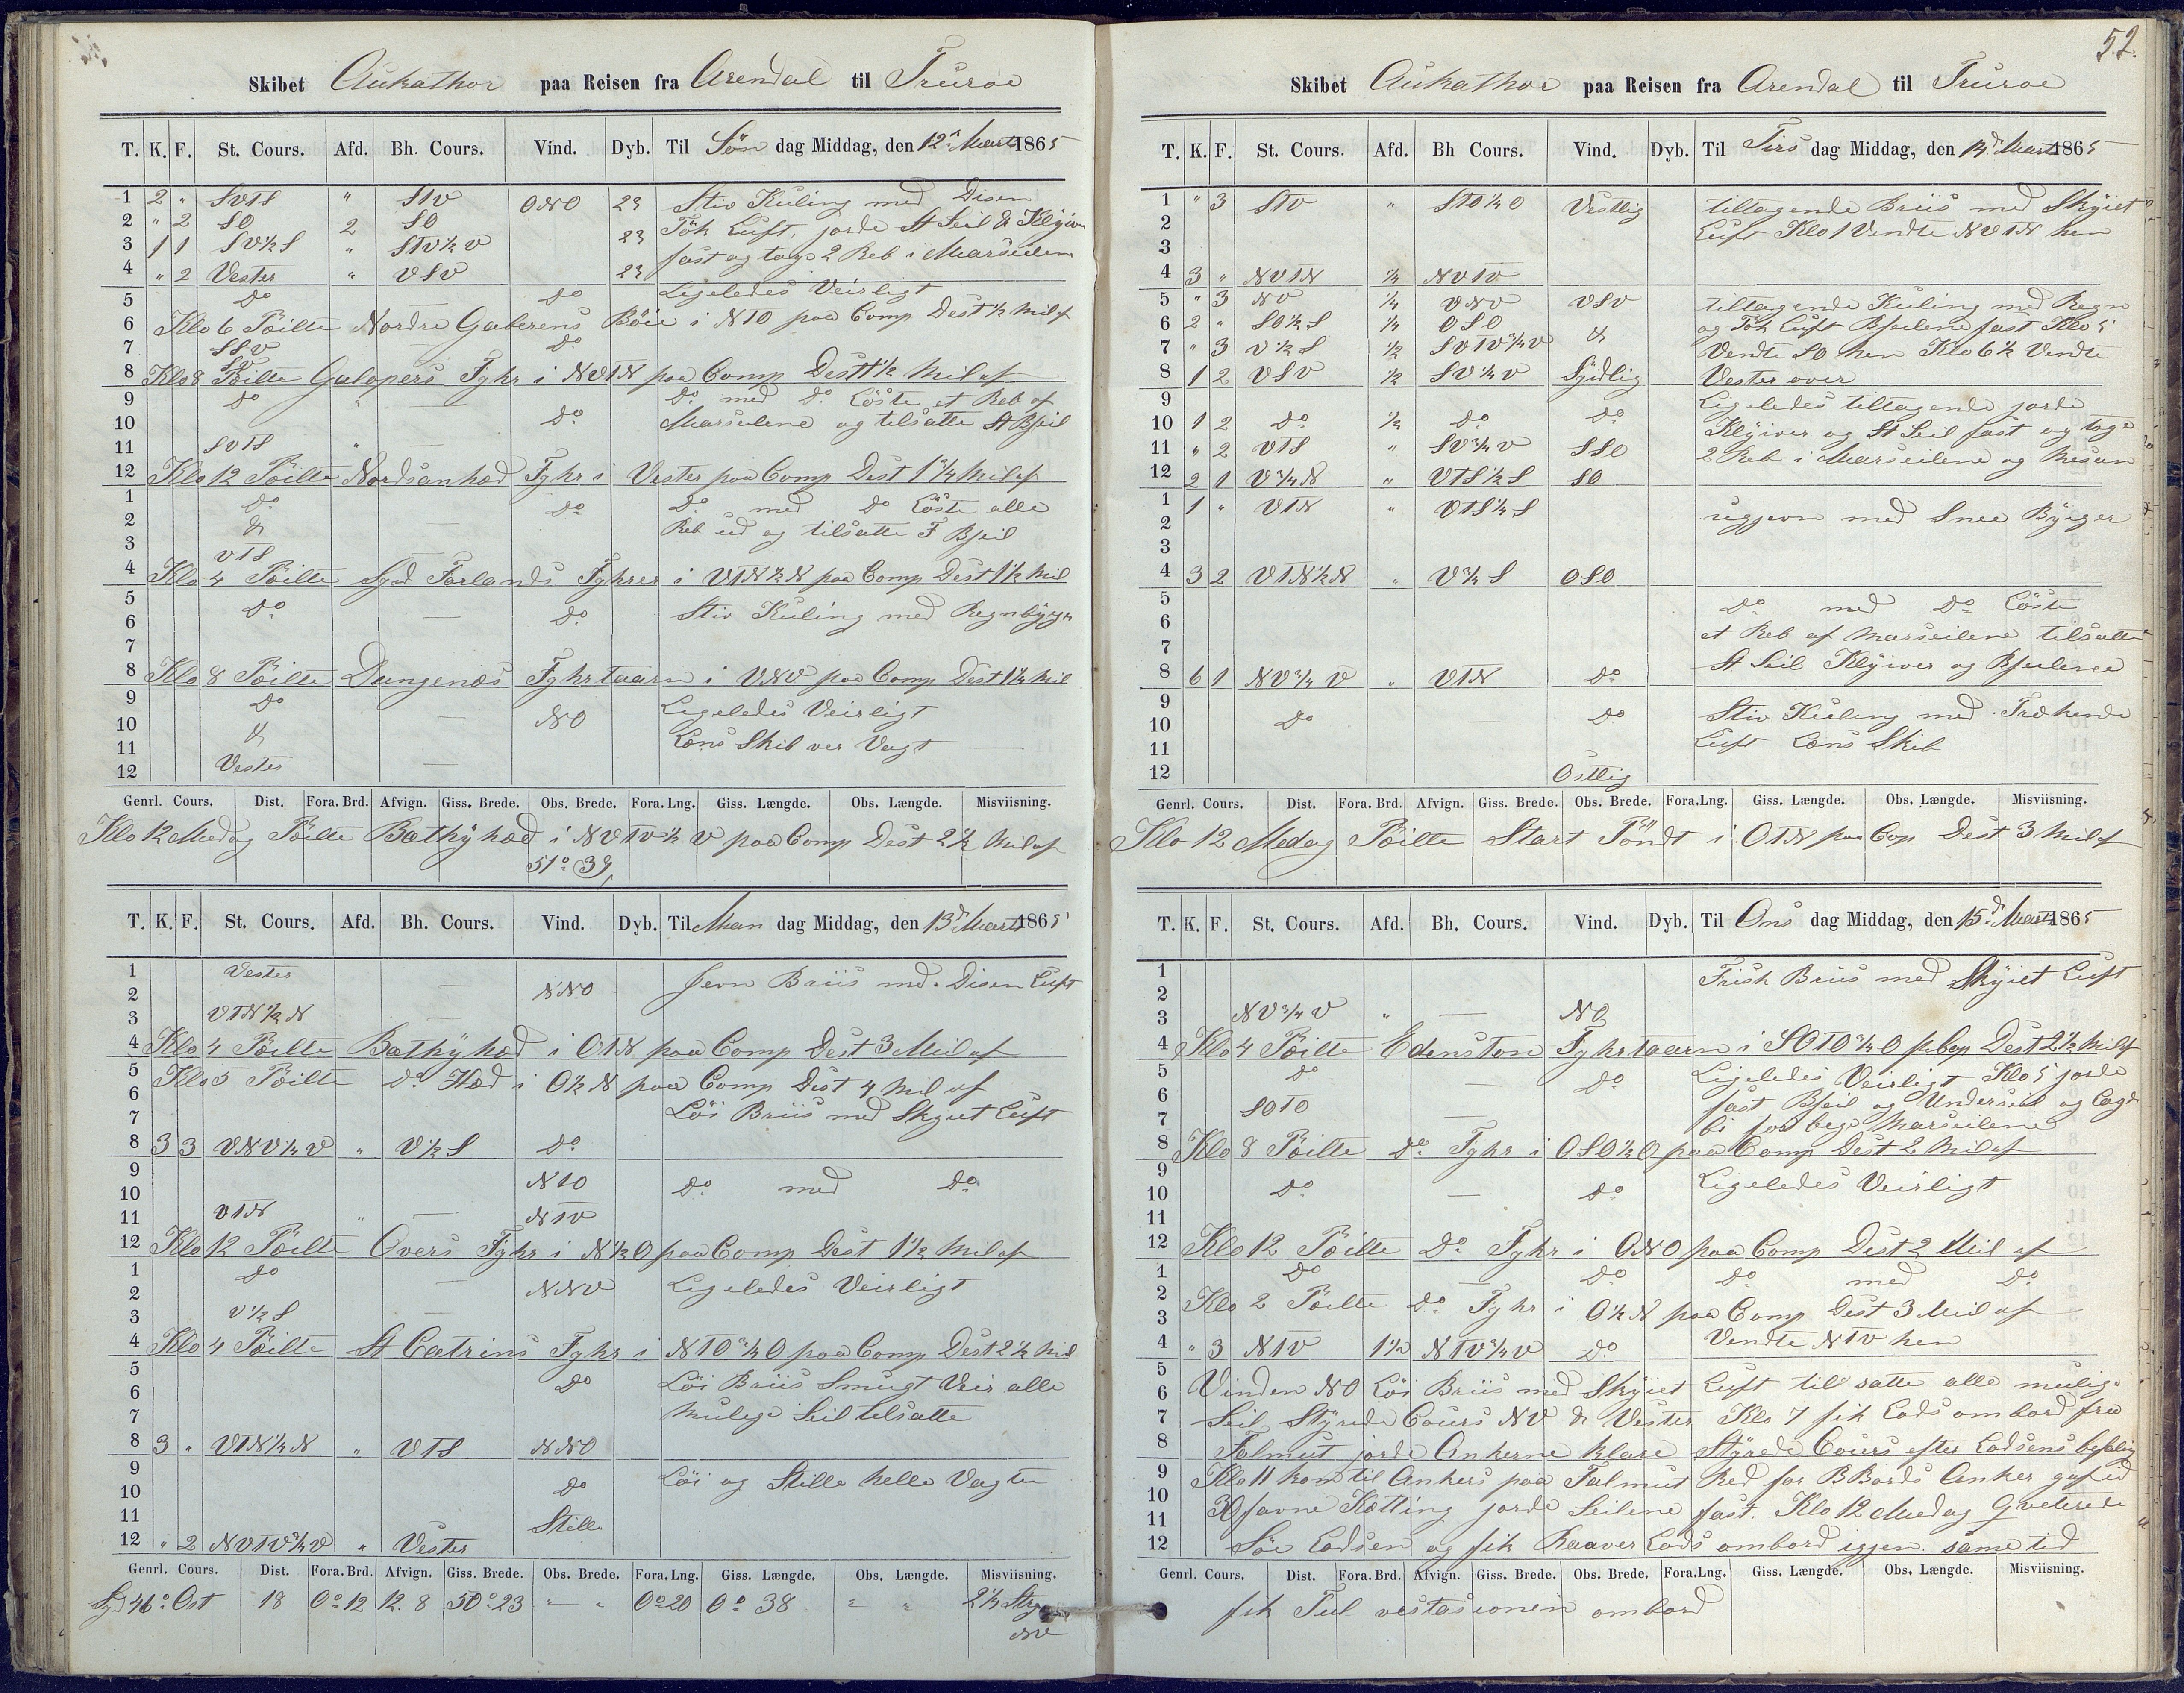 Skibet Aukathor paa Reisen fra Arendal til Truroe
T. K. F. St. Cours. Afd. Bh. Cours. Vind. Dyb. Til Søn dag Middag, den 12te Marts 1865
1 2 " SVTS " STV ONO 23 Stiv Kuling med Disen
2 " 2 SO 2 SO Tök Luft, jorde St Seil & Klyiver
3 1 1 SV½S " STV½V 23 fast og toge 2 Reb i Marseilene
4 " 2 Vester " VSV 23
5 Do Do Ligeledes Veirligt
6 Klo 6 Pöilte Nordre Gaberens Böie i NTO paa Comp Dest ½ Mil af
7 SSV Do
8 SV
Klo 8 Pöilte Galopers Fyhr i NVTN paa Comp Dest 1½ Mil af
9 Do " Do med Do Löste et Reb af
10 Do Marseilene og tilsatte St Bseil
11 SVTS "
12 Klo 12 Pöilte Nordsanhæd Fyhr i Vester paa Comp Dest 1¾ Mil af
1 Do Do Do med Do Löste alle
2 & Reb ud og tilsatte F Bseil
3 VTS
4 Klo 4 Pöilte Syd Forlands Fyhrer i VTN½N paa Comp Dest 1½ Mil
5 Do Do Stiv Kuling med Regnbyger
6
7
8 Klo 8 Pöilte Dungenæs Fyhrtaarn i VNV paa Comp Dest 1½ Mil
9 Do NO Ligeledes Veirligt
10 & Læns Skib ver Vagt
11
12 Vester
Genrl. Cours. Dist. Fora. Brd. Afvign. Giss. Brede. Obs. Brede. Fora. Lng. Giss. Længde. Obs. Længde. Misviisning.
Klo 12 Medag Pöilte Bæthyhæd i NVTV½V paa Comp Dest 2½ Mil af
51° 39,
T. K. F. St. Cours. Afd. Bh. Cours. Vind. Dyb. Til Man dag Middag, den 13de Marts 1865
1 Vester NNO Jevn Briis med Disen Luft
2
3 VTN½N
4 Klo 4 Pöilte Bæthyhæd i OTN paa Comp Dest 3 Mil af
5 Klo 5 Pöilte Do Hæd i O½N paa Comp Dest 4 Mil af
6
7 Löi Briis med Skyiet Luft
8 3 3 VNV¼V " V½S Do
9 NTO Do med Do
10
11 VTN " NTV
12 Klo 12 Pöilte Overs Fyhr i N½O paa Comp Dest 1½ Mil af
1 Do NNV Ligeledes Veirligt
2
3 V½S
4 Klo 4 Pöilte St Catrins Fyhr i NTO¾O paa Comp Dest 2½ Mil
5 Do Löi Briis Smugt Veir alle
6 Mulige Seil tilsatte
7
8 3 " VTN¼N " VTS NNO
9 Do Löi og Stille helle Vagten
10
11 Stille
12 " 2 NVTV¾V " Vester
Genrl. Cours. Dist. Fora. Brd. Afvign. Giss. Brede. Obs. Brede. Fora. Lng. Giss. Længde. Obs. Længde. Misviisning.
Syd 46° Ost 18 0° 12 12. 8 50° 23 " " 0° 20 0° 38 " " 2¼ Streg
NV
52.
Skibet Aukathor paa Reisen fra Arendal til Truroe
T. K. F. St. Cours. Afd. Bh Cours. Vind. Dyb. Til Tirs dag Middag, den 14de Marts 1865
1 " 3 STV " STO¼O Vestlig tiltagende Briis med Skyiet
2 Luft Klo 1 Vendte NVTN hen
3
4 3 " NVTN ¼ NVTV
5 " 3 NV ¼ VNV VSV tiltagende Kuling med Regn
6 2 " SO½S ¼ OSO & og Tök Luft Bseilene fast Klo 5
7 " 3 V½S ½ SVTV¾V Vendte SO hen Klo 6½ Vendte
8 1 2 VSV ½ SV¼V Sydlig Vester over
9 Ligeledes tiltagende jorde
10 1 2 Do ½ Do Do Klyiver og St Seil fast og toge
11 " 2 VTS " SV¾V SSO 2 Reb i Marseilene og Mesan
12 2 1 V¾N " VTS½S SO
1 1 " VTN " VTS¼S ugjevn med Snee Byger
2
3
4 3 2 VTN½N " V¾S OSO
5 Do med Do Löste
6 et Reb af Marseilene tilsatte
7
8 6 1 NV¾V " VTN Do St Seil Klyiver og Bseilene
9 Stiv Kuling med Trækende
10 Do Do Luft Læns Skib
11
12 Ostlig
Genrl. Cours. Dist. Fora. Brd. Afvign. Giss. Brede. Obs. Brede. Fora.Lng. Giss. Længde. Obs. Længde. Misviisning.
Klo 12 Medag Pöilte Start Pöndt i OTN paa Cop Dest 3 Mil af
T. K. F. St. Cours. Afd. Bh. Cours. Vind. Dyb. Til Ons dag Middag, den 15de Marts 1865
1 Frisk Briis med Skyiet Luft
2
3 NV¾V " NO
4 Klo 4 Pöilte Edenston Fyhrtaarn i SOTO¾O p Cop Dest 2½ Mil af
5 Do Do Ligeledes Veirligt Klo 5 jorde
6 SOTO fast Bseil og Underseil og Lagde
7 bi for bege Marseilene
8 Klo 8 Pöilte Do Fyhr i OSO½O paa Comp Dest 2 Mil af
9 Ligeledes Veirligt
10 Do Do
11
12 Klo 12 Pöilte Do Fyhr i ONO paa Comp Dest 2 Mil af
1 Do Do Do med Do
2 Klo 2 Pöilte Do Fyhr i O½N paa Comp Dest 3 Mil af
3
4 " 3 NTV 1½ NTV¾V Do Vendte NTV hen
5 Vinden NO Löi Briis med Skyiet Luft til satte alle mulige
6
7 Seil, Styrede Cours NV & Vester Klo 7 fik Lods ombord fra
8 Falmut jorde Ankerne klare Styrede Cours efter Lodsens befaling
9 Klo 11 kom til Ankers paa Falmut Red for BBords Anker gaf ud
10 30 favne Kætting jorde Seilene fast. Klo 12 Medag Qveterede
11
12 Söe Lodsen og fik Haaver Lods ombord igjen same tid
Genrl. Cours. Dist. Fora. Brd. Afvign. Giss. Brede. Obs. Brede. Fora.Lng. Giss. Længde. Obs. Længde. Misviisning.
fik Tul vestasionen ombord